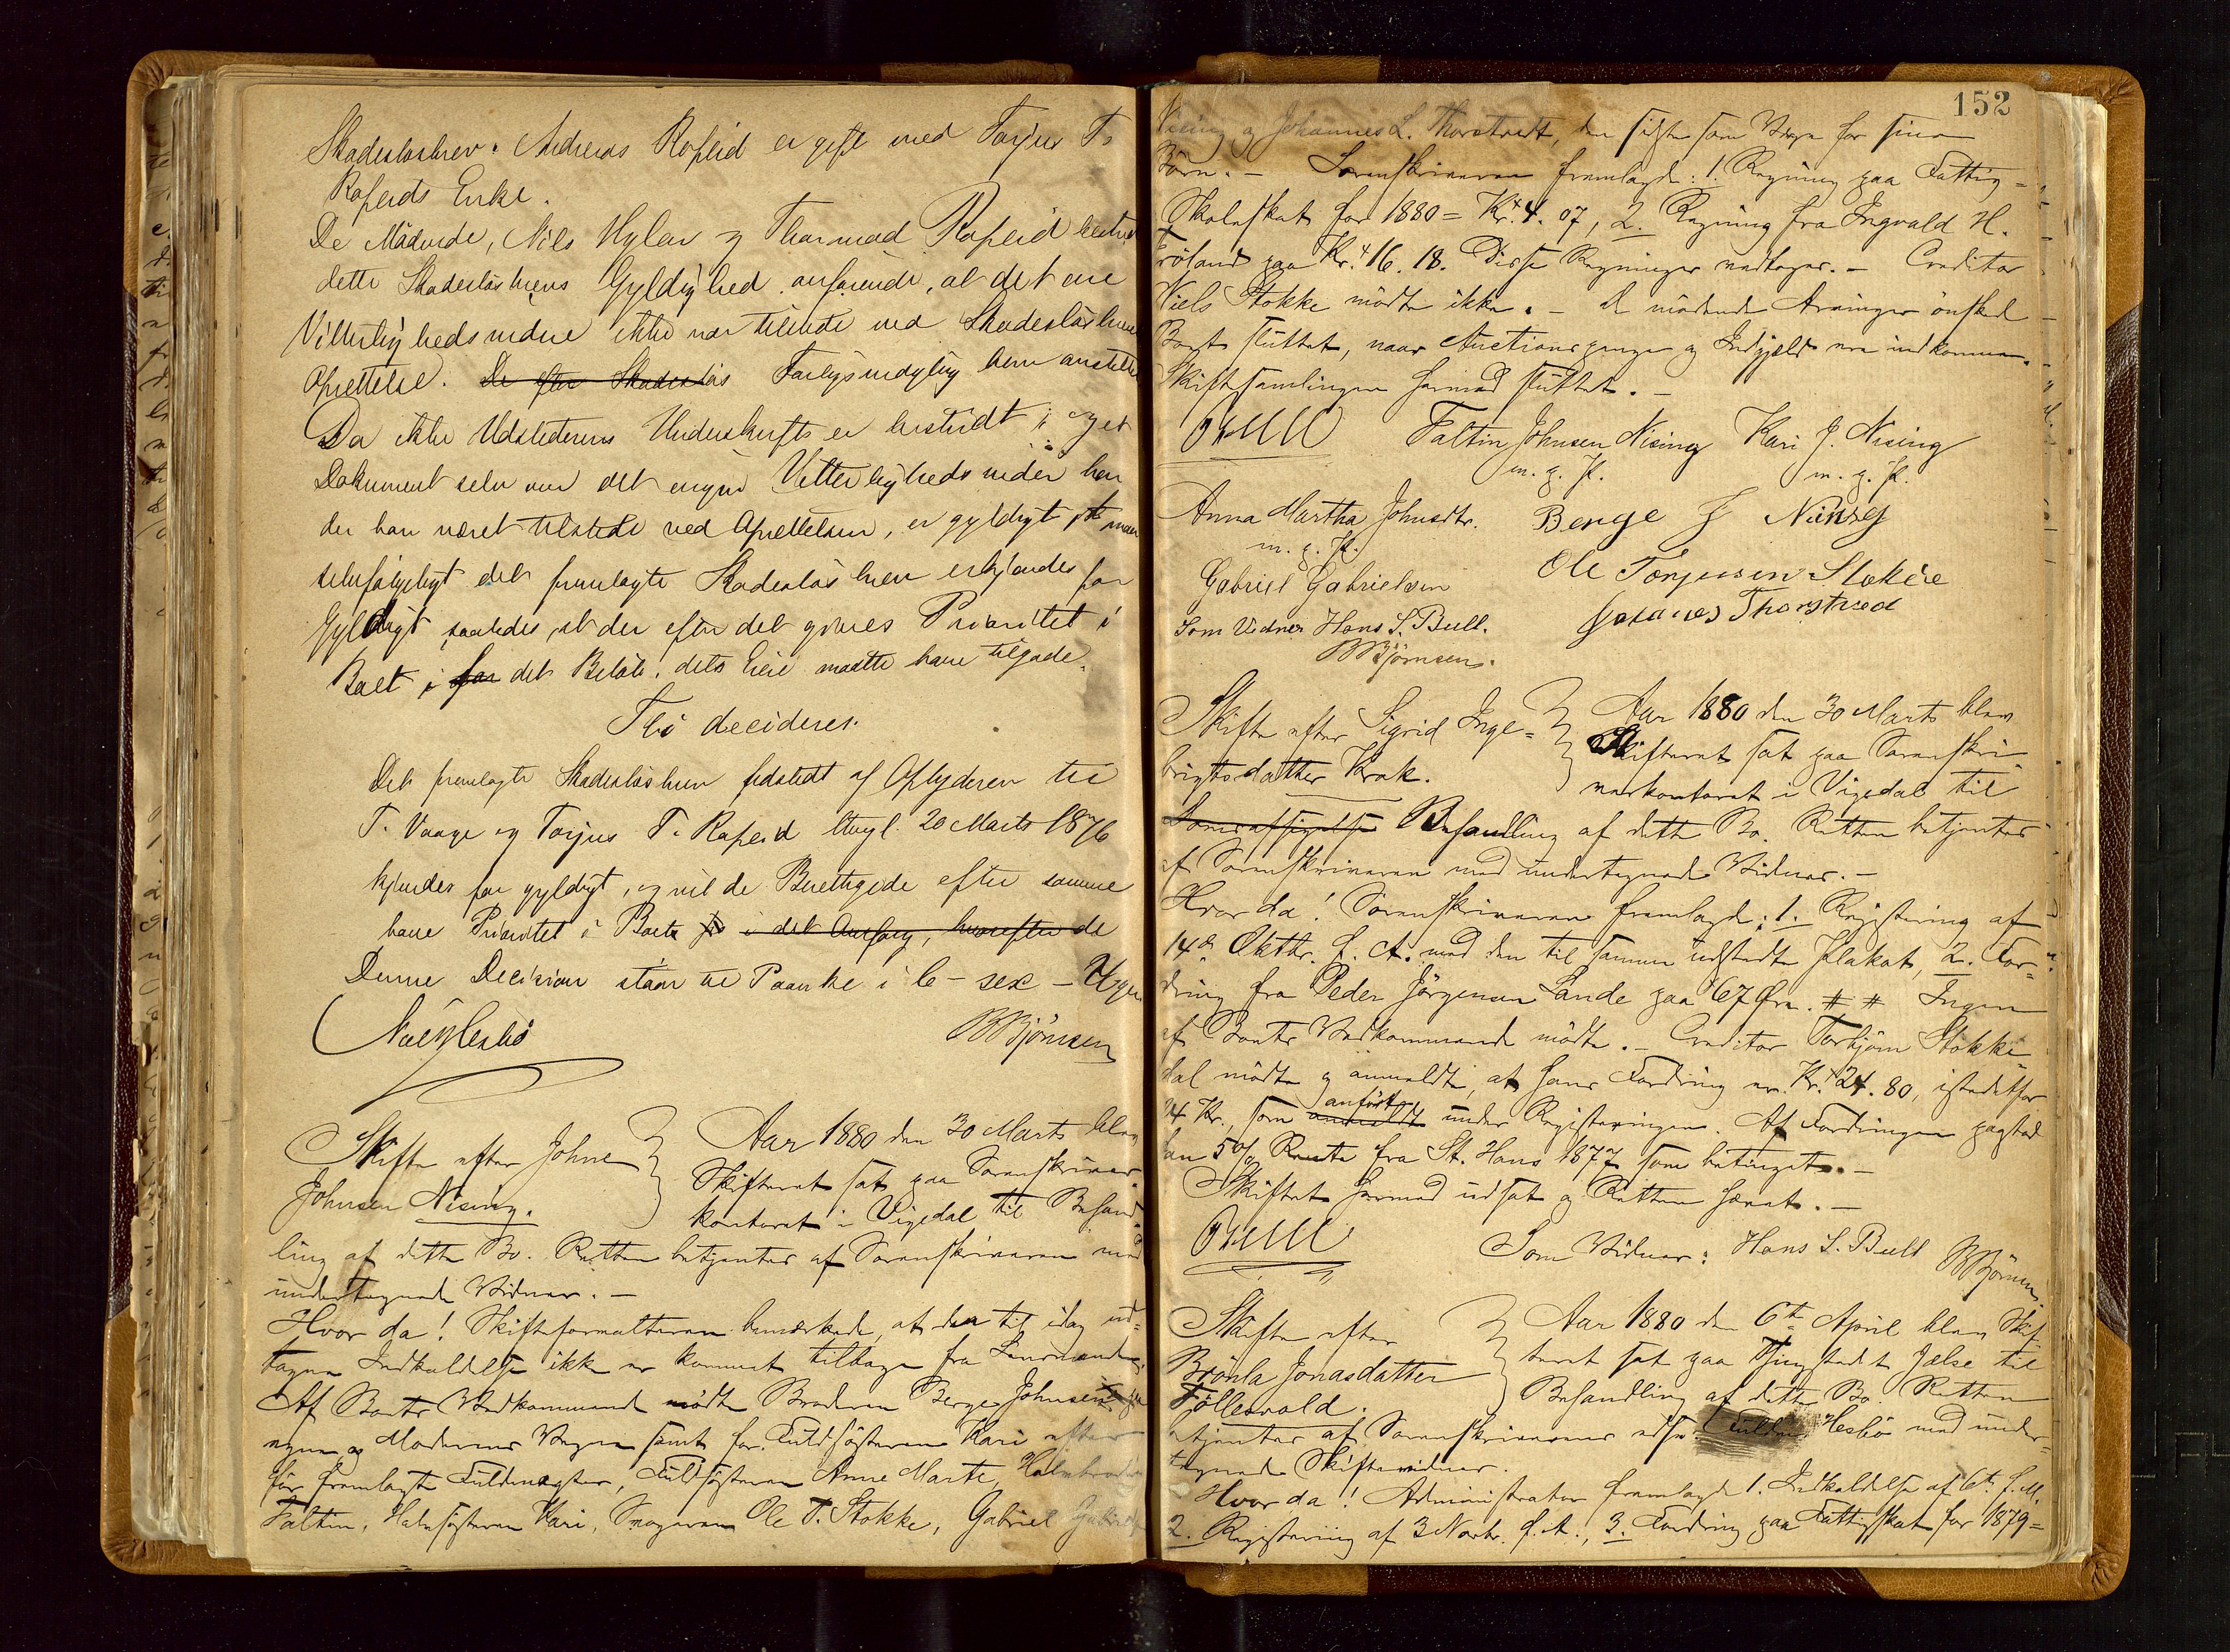 Skadesløsbrev. Andreas Ropeid er gift med Torjus T.
Ropeids Enke.
De Mødende, Nils Hylen og Thormod Ropeid bestred
dette Skadesløsbrevs Gyldighed anførende, at det ene
Vitterlighedsvidne ikke var tilstede ved Skadesløsbrevets
Oprettelse. De efter Skadesløs Forligsmægling blev anstillet
Da ikke Udstederens Underskrift er bestridt og et
Dokument selv om det ingen Vitterlighedsvidner har
der har været tilstede ved Oprettelsen, er gyldigt maa
selvfølgeligt det fremlagte Skadesløsbrev erkjendes for
Gyldigt saaledes at der efter det gives Prioritet i
Boet i for det Beløb, dets Eiere maatte have tilgode.
Thi decideres:
Det fremlagte Skadesløsbrev udstedt af Opbyderen til
T. Vaage og Torjus T. Ropeid thingl. 20 Marts 1876
kjendes for gyldigt, og vil de Berettigede efter samme
have Prioritet i Boet i det Omfang, hvorefter de
Denne Decision staar til Paanke i 6 – sex – Uger
BBjörnsen
Skifte efter John
Johnsen Nising.
Aar 1880 den 30 Marts blev
Skifteret sat paa Sorenskriver-
kontoret i Vigedal til Behand-
ling af dette Bo. Retten betjentes af Sorenskriveren med
undertegnede Vidner. –
Hvor da! Skifteforvalteren bemærkede, at den til idag ud-
tagne Indkaldelse ikke er kommet tilbage fra Lensmanden.
Af Boets Vedkommende mødte Broderen Berge Johnsen
egne og Moderens Vegne samt for Fuldsøsteren Kari efter
før fremlagte Fuldmagter, Fuldsøsteren Anne Marte, Halvbroderen
Faltin, Halvsøsteren Kari, Svogeren Ole T. Stokke, Gabriel Gabrielsen
152
Nising og Johannes L. Thorstvedt, den sidste som Værge for sine
Børn. – Sorenskriveren fremlagde: 1. Regning paa Fattig-
Skoleskat for 1880 = Kr. 4. 07, 2. Regning fra Ingvald H.
Frøland paa Kr. 16. 18. Disse Regninger vedtoges. – Creditor
Niels Stokke mødte ikke. – De mødende Arvinger ønsked
Boet sluttet, naar Auctionspenge og Indgjæld ere indkomne.
Skiftesamlingen hermed sluttet. –
Faltin Johnsen Nising Kari J. Nising
m. p. P. m. p. P.
Anna Martha Johnsdtr. Berge J Nising
m. p. P.
Gabriel Gabrielsen Ole Torjussen Stokke
Som Vidner Hans S. Bull. Johannes Thorstved
BBjörnsen.
Skifte efter Sigrid Inge-
brigtsdatter Krak.
Aar 1880 den 30 Marts blev
Skifteret sat paa Sorenskri-
verkontoret i Vigedal til
Behandling af dette Bo. Retten betjentes
af Sorenskriveren med undertegnede Vidner. –
Hvor da! Sorenskriveren fremlagde: 1. Registering af
14de Oktbr. f. A. med den til samme udstedte Plakat, 2. For-
dring fra Peder Jörgensen Sande paa 67 Øre. # # Ingen
af Boets Vedkommende mødte. – Creditor Torbjørn Stokke-
dal mødte og anmeldte, at hans Fordring er Kr. 24. 80, istedetfor
24 Kr., som anmeldt anført under Registeringen. Af Fordringen paastod
han 5 % Rente fra St. Hans 1877 som betinget. –
Skiftet hermed udsat og Retten hævet. –
Som Vidner: Hans S. Bull BBjörnsen.
Skifte efter
Brönla Jonasdatter
Føllesvold.
Aar 1880 den 6te April blev Skif-
teret sat paa Thingstedet Jelse til
Behandling af dette Bo. Retten
betjentes af Sorenskriverens edsv. Fuldm. Hesbø med under-
tegnede Skiftevidner.
Hvor da! Administrator fremlagde 1. Indkaldelse af 6te f. M.
2. Registering af 3 Novbr. f. A., 3. Fordring paa Fattigskat for 1879=